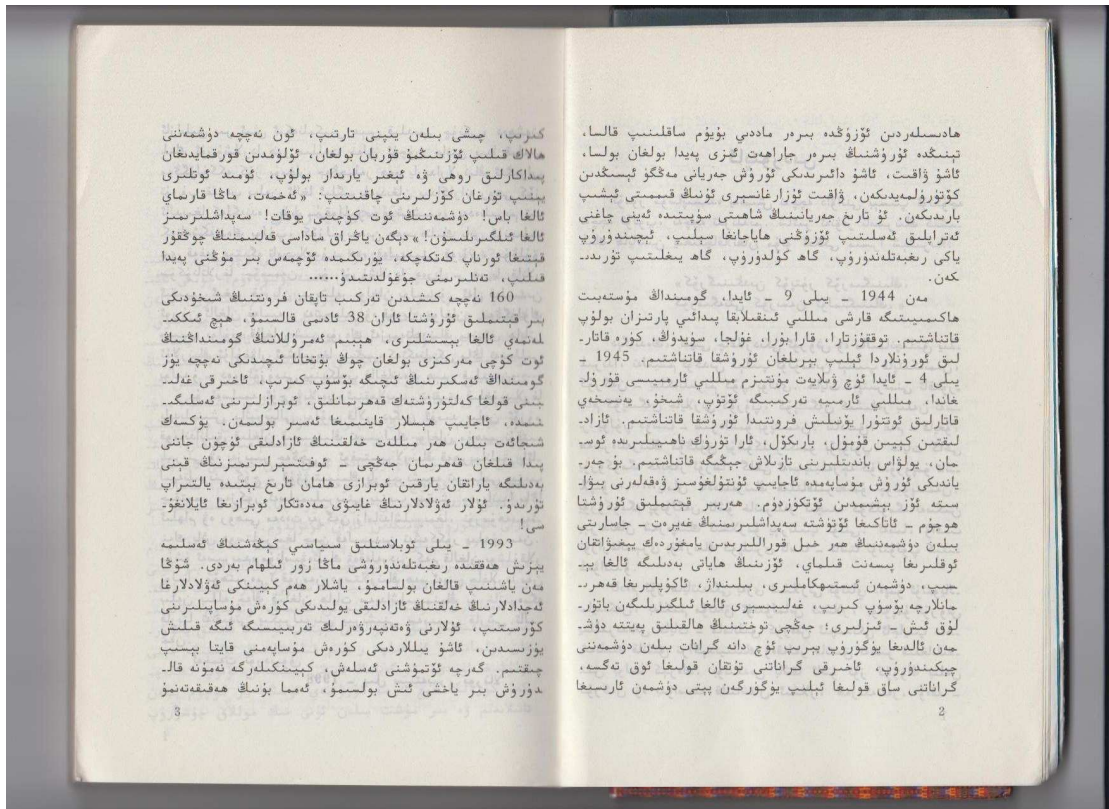 ھادىسىلەردىن ئۆزۈڭدە بىرەر ماددىي بۇيۇم ساقلىنىپ قالسا،
تېنىڭدە ئۇرۇشنىڭ بىرەر جاراھەت ئىزى پەيدا بولغان بولسا،
ئاشۇ ۋاقىت، ئاشۇ دائىرىدىكى ئۇرۇش جەريانى مەڭگۈ ئېسىڭدىن
كۆتۈرۈلمەيدىكەن، ۋاقىت ئۇزارغانسېرى ئۇنىڭ قىممىتى ئېشىپ
بارىدىكەن. ئۇ تارىخ جەريانىنىڭ شاھىتى سۈپىتىدە ئەينى چاغنى
ئەتراپلىق ئەسلىتىپ ئۆزۈڭنى ھاياجانغا سېلىپ، ئىچىندۈرۈپ
ياكى رىغبەتلەندۈرۈپ، گاھ كۈلدۈرۈپ، گاھ يىغلىتىپ تۇرىدى-
كەن.
مەن 1944 - يىلى 9 - ئايدا، گومىنداڭ مۇستەبىت
ھاكىمىيىتىگە قارشى مىللىي ئىنقىلابقا پىدائىي پارتىزان بولۇپ
قاتناشتىم. توققۇزتارا، قارا بۇرا، غۇلجا، سۈيدۈڭ، كۈرە قاتار-
لىق ئورۇنلاردا ئېلىپ بېرىلغان ئۇرۇشقا قاتناشتىم. 1945 -
يىلى 4 - ئايدا ئۈچ ۋىلايەت مۇنتىزىم مىللىي ئارمىيىسى قۇرۇل-
غاندا، مىللىي ئارمىيە تەركىبىگە ئۆتۈپ، شىخۇ، يەنسىخەي
قاتارلىق ئوتتۇرا يۆنىلىش فرونتىدا ئۇرۇشقا قاتناشتىم. ئازاد-
لىقتىن كېيىن قۇمۇل، بارىكۆل، ئارا تۈرۈك ناھىيىلىرىدە ئوس-
مان، يولۋاس باندىتلىرىنى تازىلاش جېڭىگە قاتناشتىم. بۇ جەر-
ياندىكى ئۇرۇش مۇساپەمدە ئاجايىپ ئۇنتۇلغۇسىز ۋەقەلەرنى بىۋا-
سىتە ئۆز بېشىمدىن ئۆتكۈزدۈم. ھەربىر قېتىملىق ئۇرۇشتا
ھوجۇم - ئاتاكىغا ئۆتۈشتە سەپداشلىرىمنىڭ غەيرەت - جاسارىتى
بىلەن دۈشمەننىڭ ھەر خىل قوراللىرىدىن يامغۇردەك يېغىۋاتقان
ئوقلىرىغا پىسەنت قىلماي، ئۆزىنىڭ ھاياتى بەدىلىگە ئالغا بې-
سىپ، دۈشمەن ئىستىھكاملىرى، بىلىنداژ، ئاكۇپلىرىغا قەھرى-
مانلارچە بۆسۈپ كىرىپ، غەلىبىسېرى ئالغا ئىلگىرىلىگەن باتۇر-
لۇق ئىش - ئىزلىرى؛ جەڭچى توختىنىڭ ھالقىلىق پەيتتە دۈش-
مەن ئالدىغا يۈگۈرۈپ بېرىپ ئۈچ دانە گرانات بىلەن دۈشمەننى
چېكىندۈرۈپ، ئاخىرقى گراناتنى تۇتقان قولىغا ئوق تەگسە،
گراناتنى ساق قولىغا ئېلىپ يۈگۈرگەن پېتى دۈشمەن ئارىسىغا
2
كىرىپ، چىشى بىلەن يىپنى تارتىپ، ئون نەچچە دۈشمەننى
ھالاك قىلىپ ئۆزىنىڭمۇ قۇربان بولغان، ئۆلۈمدىن قورقمايدىغان
پىداكارلىق روھى ۋە ئېغىر يارىدار بولۇپ، ئۈمىد ئوتلىرى
يېنىپ تۇرغان كۆزلىرىنى چاقنىتىپ: «ئەخمەت، ماڭا قارىماي
ئالغا باس! دۈشمەننىڭ ئوت كۈچىنى يوقات! سەپداشلىرىمىز
ئالغا ئىلگىرىلىسۇن!» دېگەن ياڭراق ساداسى قەلبىمنىڭ چوڭقۇر
قېتىغا ئورناپ كەتكەچكە، يۈرىكىمدە ئۆچمەس بىر مۇڭنى پەيدا
قىلىپ، تەنلىرىمنى جۇغۇلدىتىدۇ......
160 نەچچە كىشىدىن تەركىب تاپقان فرونتنىڭ شىخۇدىكى
بىر قېتىملىق ئۇرۇشتا ئاران 38 ئادىمى قالسىمۇ، ھېچ ئىككى-
لەنمەي ئالغا بېسىشلىرى، ھېيىم ئەمرۇللانىڭ گومىنداڭنىڭ
ئوت كۈچى مەركىزى بولغان چوڭ بۇتخانا ئىچىدىكى نەچچە يۈز
گومىنداڭ ئەسكىرىنىڭ ئىچىگە بۆسۈپ كىرىپ، ئاخىرقى غەلى-
بىنى قولغا كەلتۈرۈشتەك قەھرىمانلىق، ئوبرازلىرىنى ئەسلىگى-
نىمدە، ئاجايىپ ھېسلار قاينىمىغا ئەسىر بولىمەن. يۈكسەك
شىجائەت بىلەن ھەر مىللەت خەلقىنىڭ ئازادلىقى ئۈچۈن جاننى
پىدا قىلغان قەھرىمان جەڭچى - ئوفىتسېرلىرىمىزنىڭ قېنى
بەدىلىگە ياراتقان يارقىن ئوبرازى ھامان تارىخ بېتىدە يالتىراپ
تۇرىدۇ. ئۇلار ئەۋلادلارنىڭ غايىۋى مەدەتكار ئوبرازىغا ئايلانغۇ-
سى!
1993 - يىلى ئوبلاستلىق سىياسىي كېڭەشنىڭ ئەسلىمە
يېزىش ھەققىدە رىغبەتلەندۈرۈشى ماڭا زور ئىلھام بەردى. شۇڭا
مەن ياشىنىپ قالغان بولساممۇ، ياشلار ھەم كېيىنكى ئەۋلادلارغا
ئەجدادلارنىڭ خەلقنىڭ ئازادلىقى يولىدىكى كۈرەش مۇساپىلىرىنى
كۆرسىتىپ، ئۇلارنى ۋەتەنپەرۋەرلىك تەربىيىسىگە ئىگە قىلىش
يۈزىسىدىن، ئاشۇ يىللاردىكى كۈرەش مۇساپەمنى قايتا بېسىپ
چىقتىم. گەرچە ئۆتمۈشنى ئەسلەش، كېيىنكىلەرگە نەمۇنە قال-
دۇرۇش بىر ياخشى ئىش بولسىمۇ، ئەمما بۇنىڭ ھەقىقەتەنمۇ
3